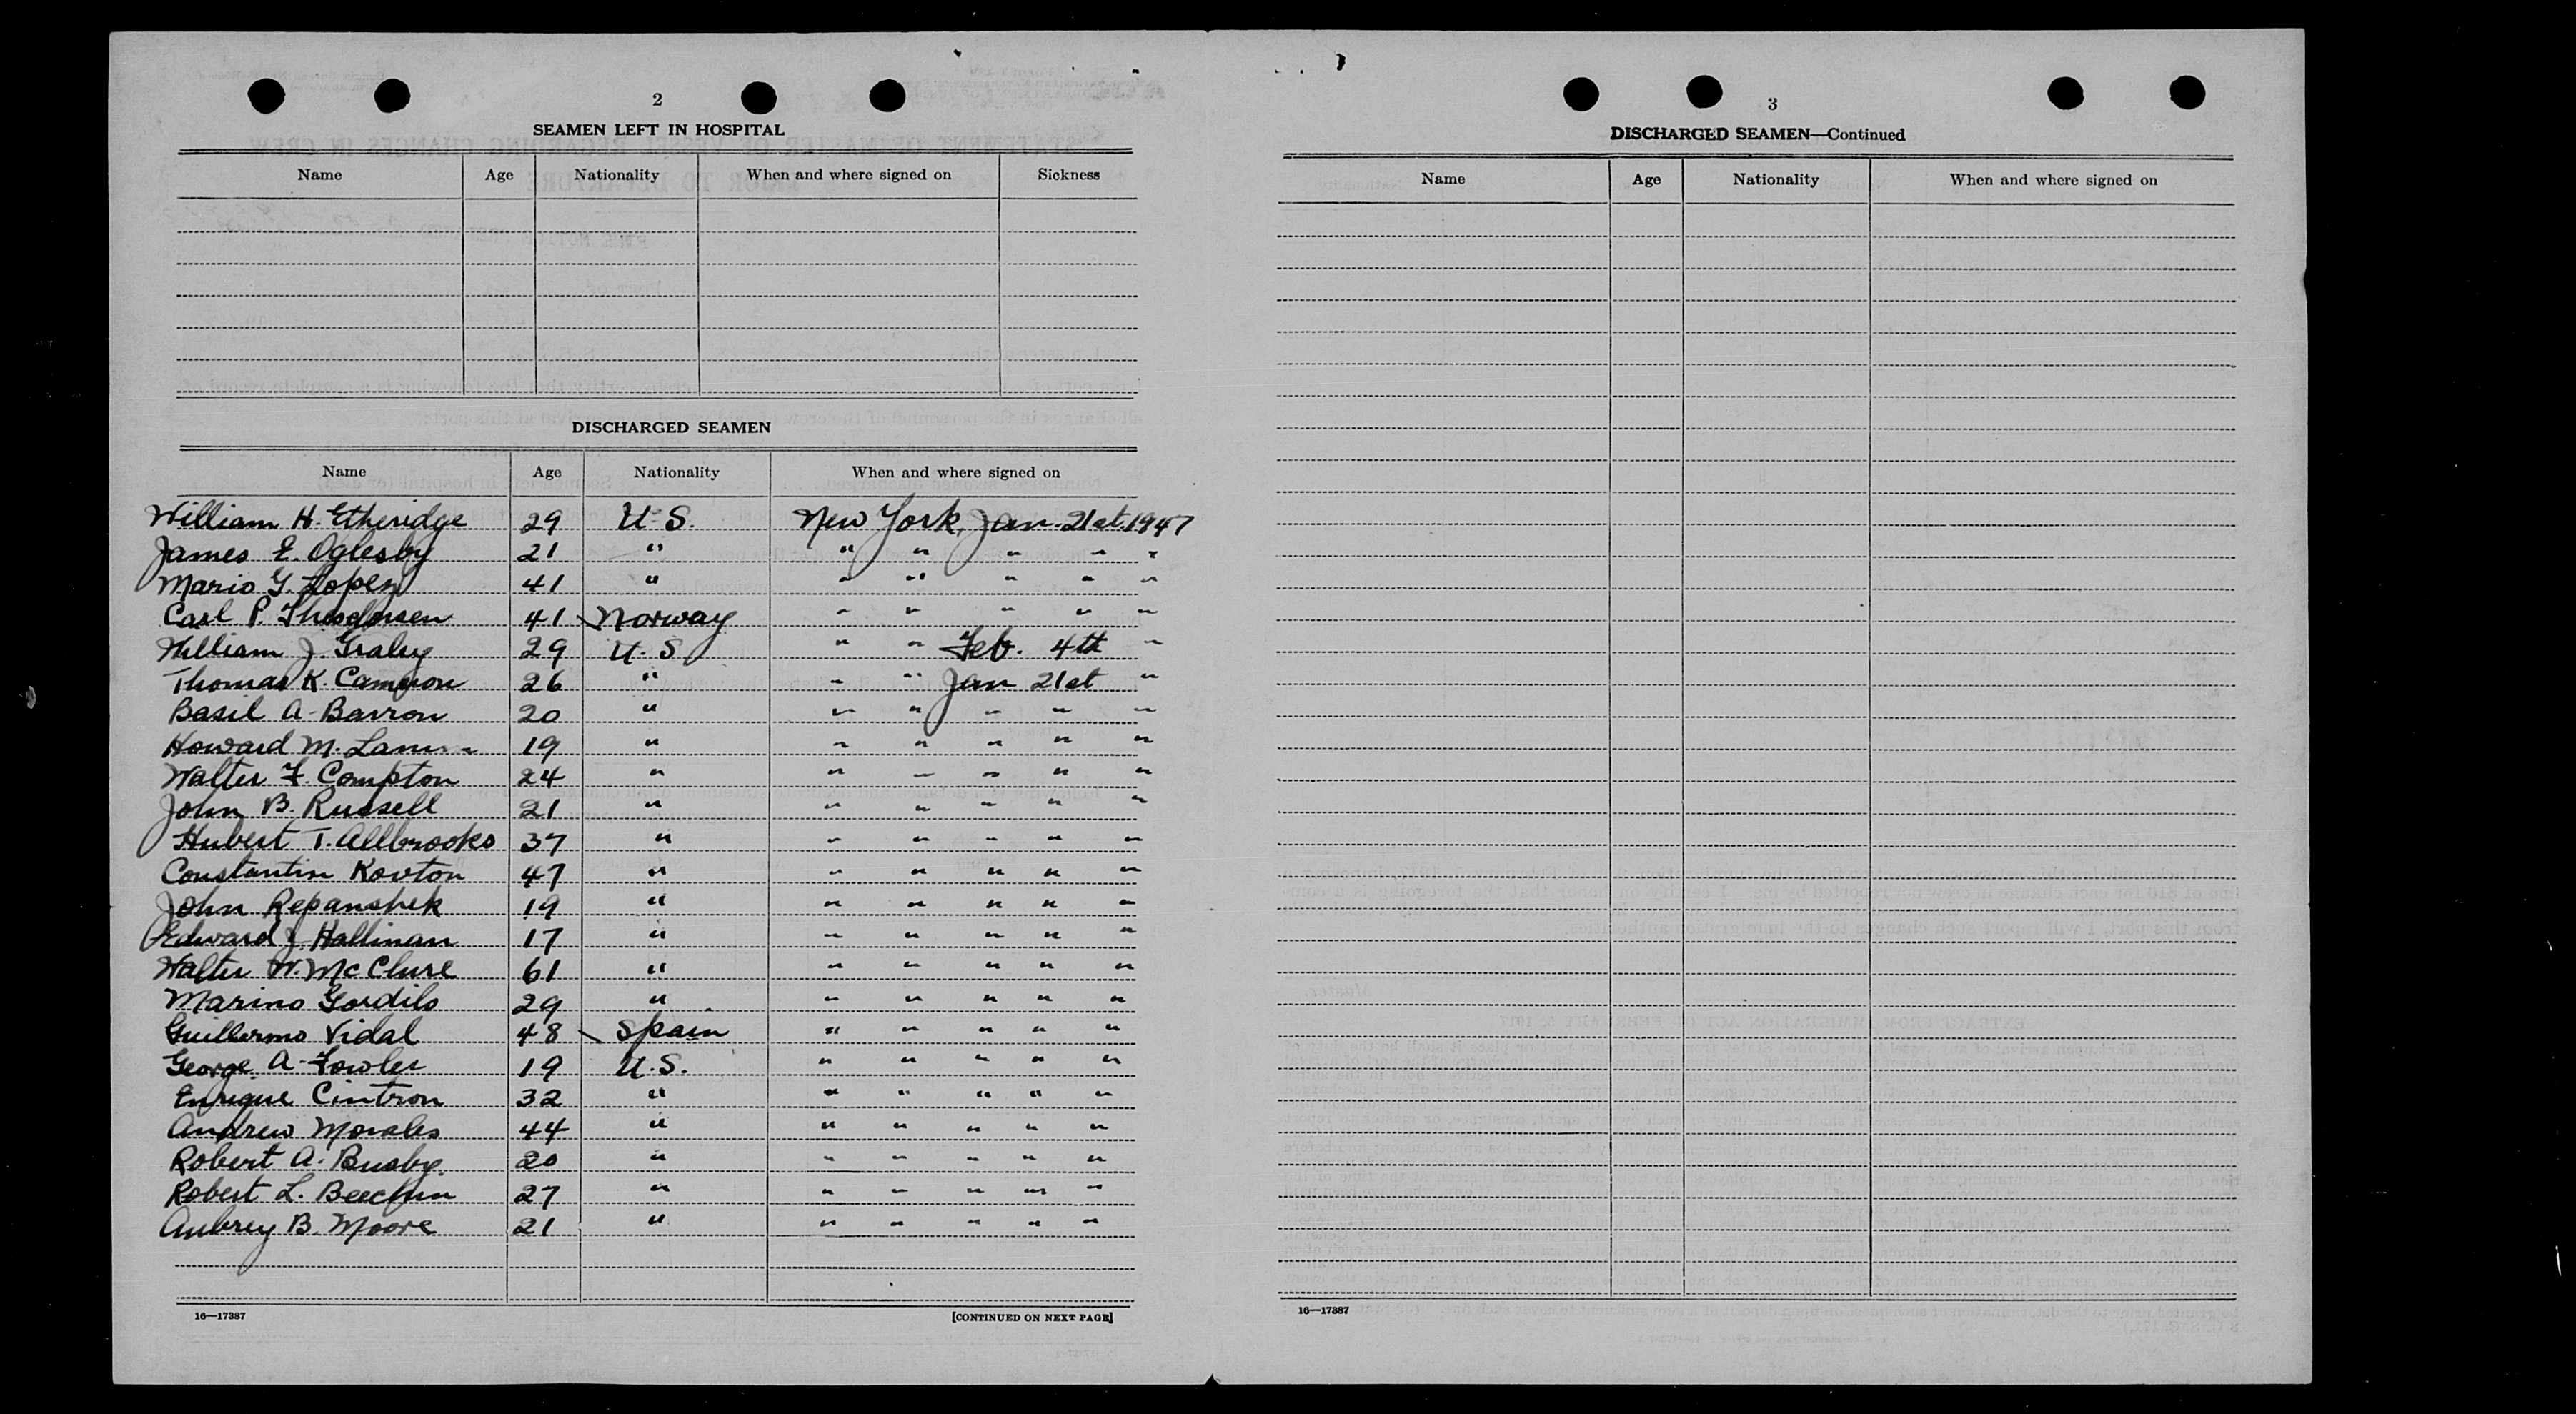 2
SEAMEN LEFT IN HOSPITAL
Name Age Nationality When and where signed on Sickness
DISCHARGED SEAMEN
Name Age Nationality When and where signed on
William H. Etheridge 29 U.S. New York, Jan. 21st. 1947
James E. Oglesby 21 " " " " " "
Mario G. Lopez 41 " " " " " "
Carl P. 41 Norway " " " " "
William J. Graley 29 U.S " " Feb. 4th "
Thomas K. Cameron 26 " " " Jan 21st "
Basil A. Barron 20 " " " " " "
Howard M. 19 " " " " " "
Walter F. Compton 24 " " " " " "
John B. Russell 21 " " " " " "
Hubert T. Allbrooks 37 " " " " " "
Constantin Kowton 47 " " " " " "
John Repanshek 19 " " " " " "
Edward J. Hallinan 17 " " " " " "
Walter W. McClure 61 " " " " " "
Marino Gordilo 29 " " " " " "
Guillermo Vidal 48 Spain " " " " "
George A. Fowler 19 U.S. " " " " "
Enrique Cintron 32 " " " " " "
Andrew Morales 44 " " " " " "
Robert A. Busby. 20 " " " " " "
Robert L. 27 " " " " " "
Aubrey B. Moore 21 " " " " " "
16—17387 [CONTINUED ON NEXT PAGE]
3
DISCHARGED SEAMEN—Continued
Name Age Nationality When and where signed on
16—17387